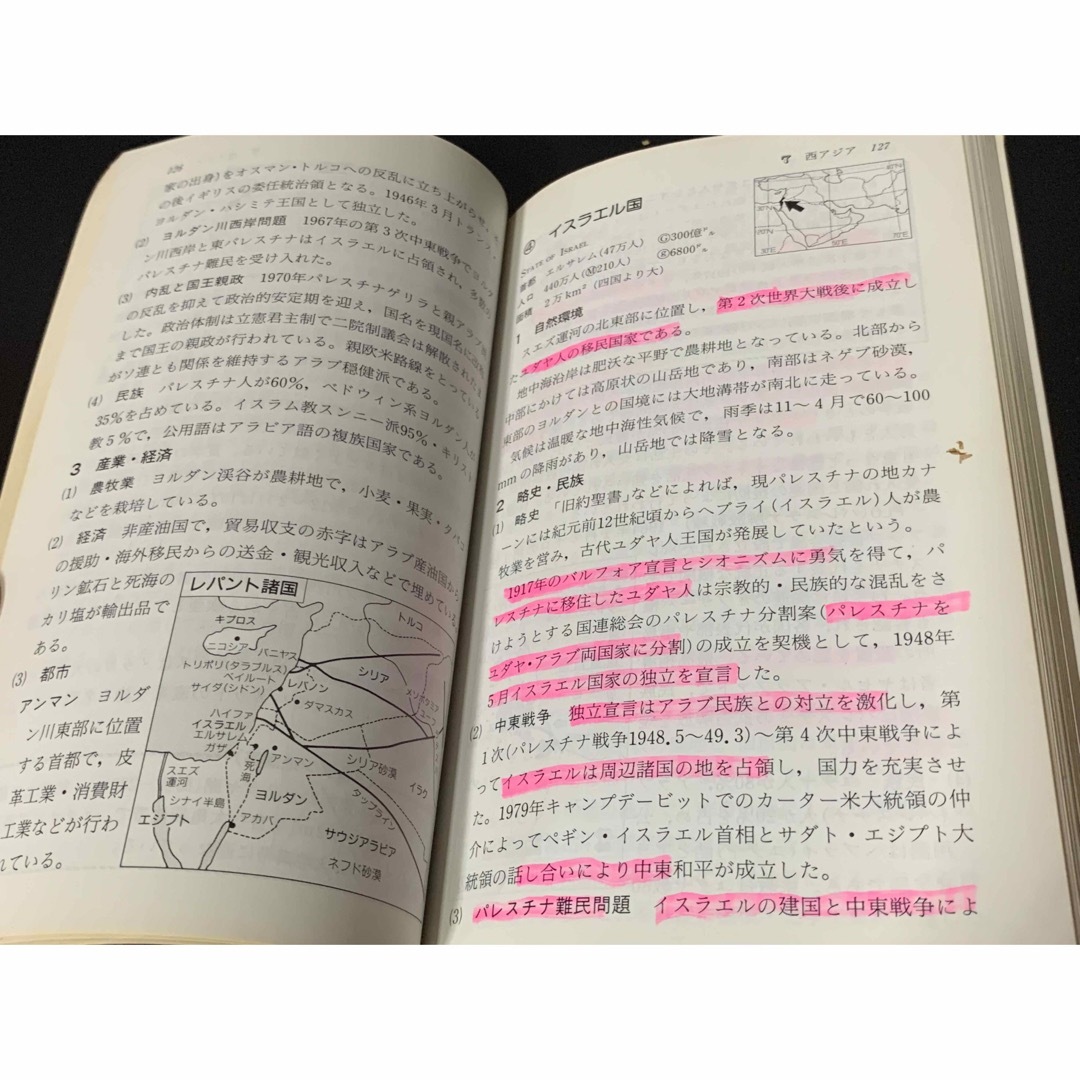 126
家の出身)をオスマン・トルコへの反乱に立ち上がらせ,
の後イギリスの委任統治領となる。1946年3月トランス・
ヨルダン・ハシミテ王国として独立した。
(2) ヨルダン川西岸問題 1967年の第3次中東戦争でヨルダ
ン川西岸と東パレスチナはイスラエルに占領され,多数の
パレスチナ難民を受け入れた。
(3) 内乱と国王親政 1970年パレスチナゲリラと親アラブ
の反乱を抑えて政治的安定期を迎え,国名を現国名に
した。政治体制は立憲君主制で二院制議会は解散された
まで国王の親政が行われている。親欧米路線をとっている
がソ連とも関係を維持するアラブ穏健派である。
(4) 民族 パレスチナ人が60%,ベドウィン系ヨルダン人
35%を占めている。イスラム教スンニー派95%・キリスト
教5%で,公用語はアラビア語の複族国家である。
3 産業・経済
(1) 農牧業 ヨルダン渓谷が農耕地で,小麦・果実・タバコ
などを栽培している。
(2) 経済 非産油国で,貿易収支の赤字はアラブ産油国から
の援助・海外移民からの送金・観光収入などで埋めている
リン鉱石と死海の
カリ塩が輸出品で
ある。
(3) 都市
アンマン ヨルダ
ン川東部に位置
する首都で,皮
革工業・消費財
工業などが行わ
れている。
レバント諸国
キプロス
ニコシア
バニヤス
トリポリ(タラブルス)
ベイルート
サイダ(シドン)
レバノン
ダマスカス
トルコ
シリア
メソポタミア
ハイファ
イスラエル
エルサレム
ガザ
死海
アンマン
シリア砂漠
イラク
スエズ
運河
シナイ半島
エジプト
ヨルダン
アカバ
タップライン
サウジアラビア
ネフド砂漠
西アジア 127
④ イスラエル国
STATE OF ISRAEL
首都 エルサレム(47万人) Ⓖ300億ドル
人口 440万人(Ⓜ210人) Ⓚ6800ドル
面積 2万km²(四国より大)
30°N
20°N
30°E
50°E
60°E
1 自然環境
スエズ運河の北東部に位置し,第2次世界大戦後に成立し
たユダヤ人の移民国家である。
地中海沿岸は肥沃な平野で農耕地となっている。北部から
中部にかけては高原状の山岳地であり,南部はネゲブ砂漠,
東部のヨルダンとの国境には大地溝帯が南北に走っている。
気候は温暖な地中海性気候で,雨季は11~4月で60~100
mmの降雨があり,山岳地では降雪となる。
2 略史・民族
(1) 略史 「旧約聖書」などによれば,現パレスチナの地カナ
ーンには紀元前12世紀頃からヘブライ(イスラエル)人が農
牧業を営み,古代ユダヤ人王国が発展していたという。
1917年のバルフォア宣言とシオニズムに勇気を得て,パ
レスチナに移住したユダヤ人は宗教的・民族的な混乱をさ
けようとする国連総会のパレスチナ分割案(パレスチナを
ユダヤ・アラブ両国家に分割)の成立を契機として,1948年
5月イスラエル国家の独立を宣言した。
(2) 中東戦争 独立宣言はアラブ民族との対立を激化し,第
1次(パレスチナ戦争1948.5~49.3)~第4次中東戦争によ
ってイスラエルは周辺諸国の地を占領し,国力を充実させ
た。1979年キャンプデービットでのカーター米大統領の仲
介によってベギン・イスラエル首相とサダト・エジプト大
統領の話し合いにより中東和平が成立した。
(3) パレスチナ難民問題 イスラエルの建国と中東戦争によ